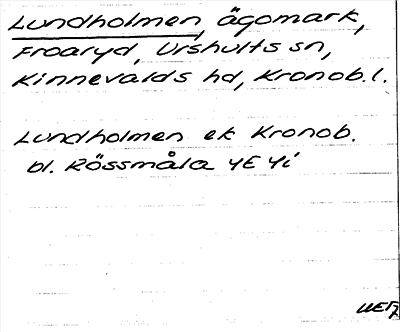 Lundholmen, ägomark,
Froaryd, Urshults sn,
Kinnevalds hd, Kronob. l.
Lundholmen ek Kronob.
bl. Rössmåla 4E 4i